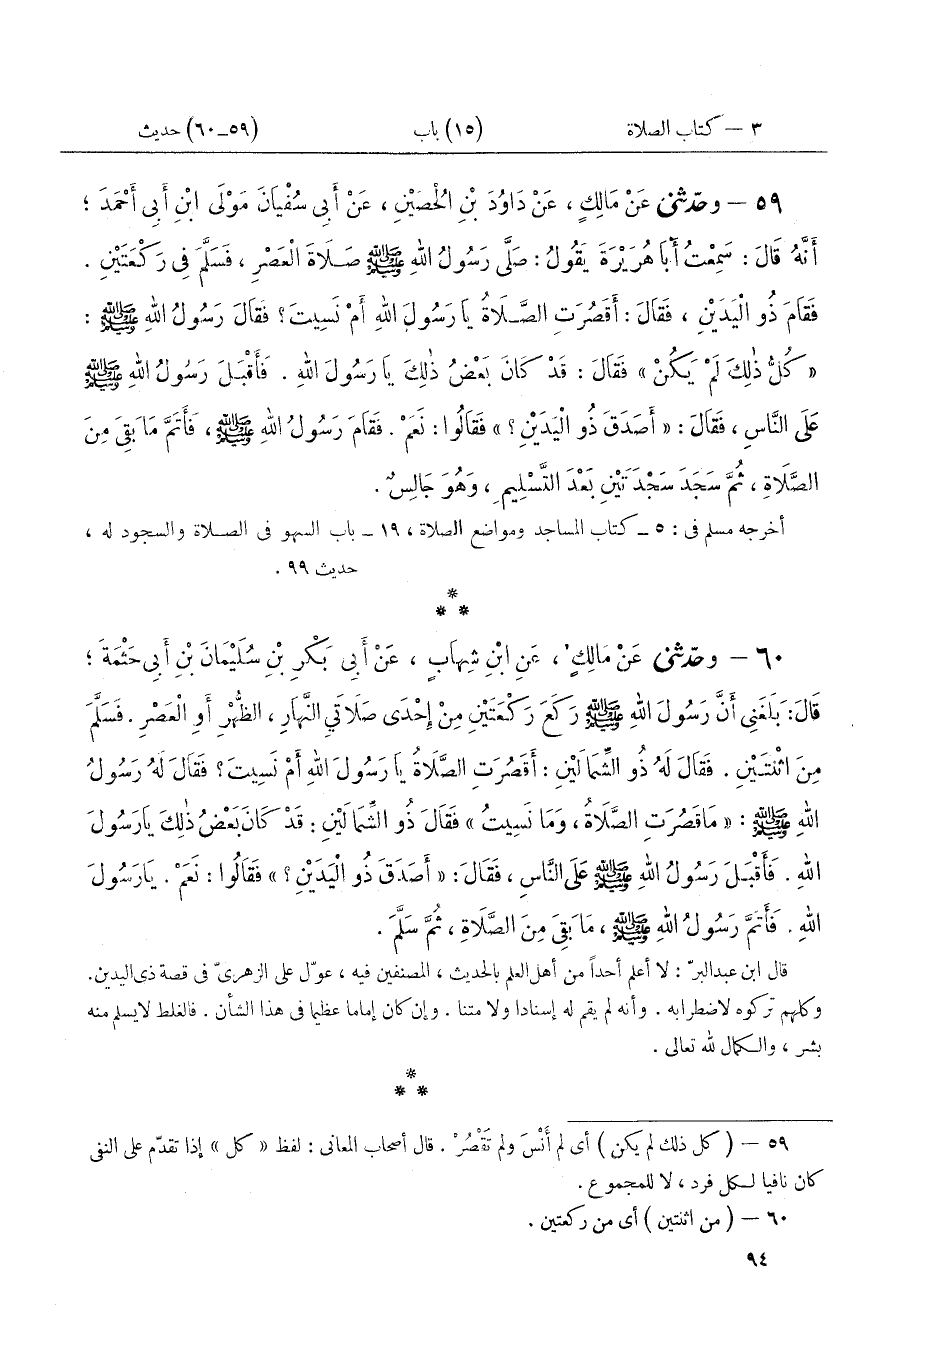 ٣ – كتاب الصلاة (١٥) باب (٥٩–٦٠) حديث
٥٩ – وحدّثني عَنْ مَالِكٍ ، عَنْ دَاوُدَ بْنِ الْحُصَيْنِ ، عَنْ أَبِي سُفْيَانَ مَوْلَى ابْنِ أَبِي أَحْمَدَ ؛
أَنَّهُ قَالَ : سَمِعْتُ أَبَا هُرَيْرَةَ يَقُولُ : صَلَّى رَسُولُ اللهِ ﷺ صَلَاةَ الْعَصْرِ ، فَسَلَّمَ فِى رَكْعَتَيْنِ .
فَقَامَ ذُو الْيَدَيْنِ ، فَقَالَ : أَقَصُرَتِ الصَّلَاةُ يَا رَسُولَ اللهِ أَمْ نَسِيتَ؟ فَقَالَ رَسُولُ اللهِ ﷺ :
« كُلُّ ذٰلِكَ لَمْ يَكُنْ » فَقَالَ : قَدْ كَانَ بَعْضُ ذٰلِكَ يَا رَسُولَ اللهِ . فَأَقْبَلَ رَسُولُ اللهِ ﷺ
عَلَى النَّاسِ ، فَقَالَ : « أَصَدَقَ ذُو الْيَدَيْنِ ؟ » فَقَالُوا : نَعَمْ . فَقَامَ رَسُولُ اللهِ ﷺ ، فَأَتَمَّ مَا بَقِىَ مِنَ
الصَّلَاةِ ، ثُمَّ سَجَدَ سَجْدَتَيْنِ بَعْدَ التَّسْلِيمِ ، وَهُوَ جَالِسٌ .
أخرجه مسلم فى : ٥ – كتاب المساجد ومواضع الصلاة ، ١٩ – باب السهو فى الصلاة والسجود له ،
حديث ٩٩ .
*
* *
٦٠ – وحدّثني عَنْ مَالِكٍ ، عَنِ ابْنِ شِهَابٍ ، عَنْ أَبِي بَكْرِ بْنِ سُلَيْمَانَ بْنِ أَبِي حَثْمَةَ ؛
قَالَ: بَلَغَنِي أَنَّ رَسُولَ اللهِ ﷺ رَكَعَ رَكْعَتَيْنِ مِنْ إِحْدَى صَلَاتَيِ النَّهَارِ ، الظُّهْرِ أَوِ الْعَصْرِ . فَسَلَّمَ
مِنَ اثْنَتَيْنِ . فَقَالَ لَهُ ذُو الشِّمَالَيْنِ : أَقَصُرَتِ الصَّلَاةُ يَا رَسُولَ اللهِ أَمْ نَسِيتَ ؟ فَقَالَ لَهُ رَسُولُ
اللهِ ﷺ : « مَا قَصُرَتِ الصَّلَاةُ ، وَمَا نَسِيتُ » فَقَالَ ذُو الشِّمَالَيْنِ : قَدْ كَانَ بَعْضُ ذٰلِكَ يَا رَسُولَ
اللهِ . فَأَقْبَلَ رَسُولُ اللهِ ﷺ عَلَى النَّاسِ ، فَقَالَ : « أَصَدَقَ ذُو الْيَدَيْنِ ؟ » فَقَالُوا : نَعَمْ . يَا رَسُولَ
اللهِ . فَأَتَمَّ رَسُولُ اللهِ ﷺ ، مَا بَقِىَ مِنَ الصَّلَاةِ ، ثُمَّ سَلَّمَ .
قال ابن عبدالبرّ : لا أعلم أحداً من أهل العلم بالحديث ، المصنفين فيه ، عوّل على الزهرىّ فى قصة ذى اليدين.
وكلهم تركوه لاضطرابه . وأنه لم يقم له إسنادا ولا متنا . وإن كان إماما عظيما فى هذا الشأن . فالغلط لا يسلم منه
بشر ، والكمال لله تعالى .
*
* *
٥٩ – ( كل ذلك لم يكن ) أى لم أَنْسَ ولم تَقْصُرْ . قال أصحاب المعانى : لفظ « كل » إذا تقدّم على النفى
كان نافيا لكل فرد ، لا للمجموع .
٦٠ – ( من اثنتين ) أى من ركعتين .
٩٤